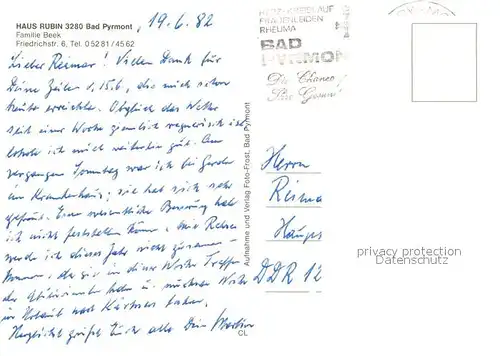 HAUS RUBIN 3280 Bad Pyrmont
Familie Beek
Friedrichstr. 6, Tel. 0 52 81 / 45 62
, 19.6.82
Lieber Reimar! Vielen Dank für
Deine Zeilen v. 15.6., die mich schon
heute erreichte. Obgleich das Wetter
seit einer Woche ziemlich regnerisch ist
erhole ich mich weiterhin gut. Am
vergangenen Sonntag war ich bei Gerda
im Krankenhaus; sie hat sich sehr
gefreut. Eine wesentliche Besserung hab
ich nicht feststellen können. Mit
werde ich dieses Jahr nicht zusammen-
kommen, da sie in dieser Woche Treffen
der haben u. nächsten Woche
in Urlaub nach fahren.
Herzlichst grüßt Euch alle Dein
CL
Aufnahme und Verlag Foto-Frost, Bad Pyrmont
HERZ-KREISLAUF
FRAUENLEIDEN
RHEUMA
BAD
PYRMONT
Die Chance f
Ihre Gesund
Herrn
Reima
Haups
DDR 12
privacy protection
Datenschutz